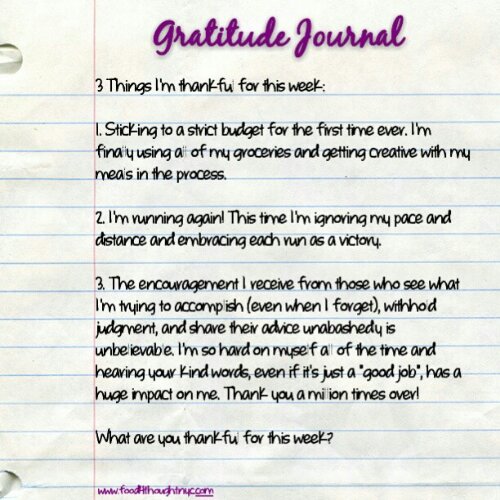 Gratitude Journal
3 Things I'm thankful for this week:
1. Sticking to a strict budget for the first time ever. I'm
finally using all of my groceries and getting creative with my
meals in the process.
2. I'm running again! This time I'm ignoring my pace and
distance and embracing each run as a victory.
3. The encouragement I receive from those who see what
I'm trying to accomplish (even when I forget), withhold
judgment, and share their advice unabashedly is
unbelievable. I'm so hard on myself all of the time and
hearing your kind words, even if it's just a "good job", has a
huge impact on me. Thank you a million times over!
What are you thankful for this week?
www.food4thoughtnyc.com